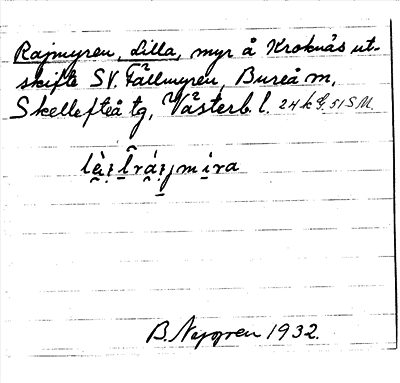 Rajmyren, Lilla, myr å Kroknäs ut-
skifte SV. Fällmyren, Bureå sn,
Skellefteå tg, Västerb. l. 24 k G, 51 S M.
B. Nygren 1932.